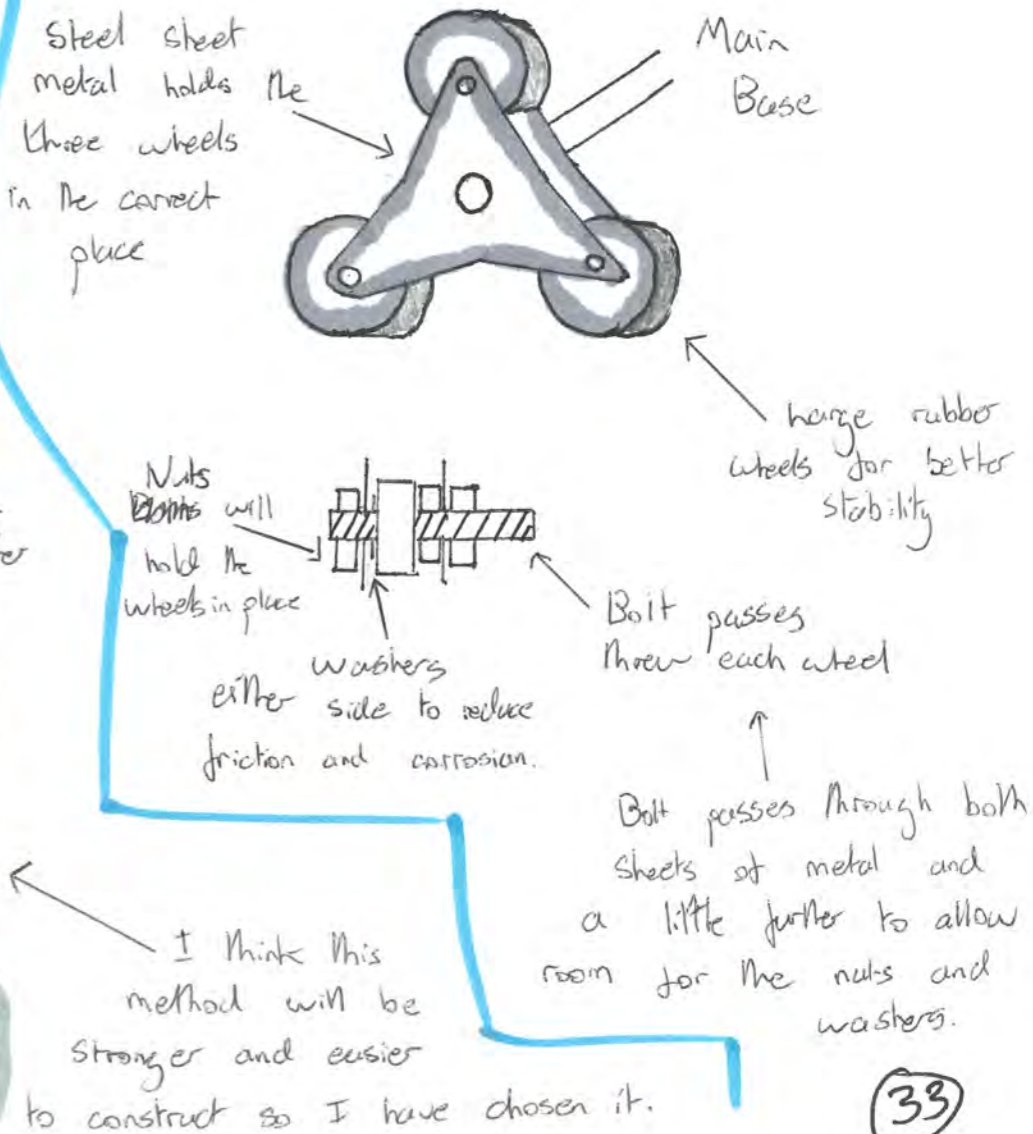 Steel sheet
metal holds the
three wheels
in the correct
place
Main
Base
Large rubber
wheels for better
stability
Nuts
will
hold the
wheels in place
washers
either side to reduce
friction and corrosian.
Bolt passes
threw each wheel
Bolt passes through both
sheets of metal and
a little further to allow
room for the nuts and
washers.
I think this
method will be
stronger and easier
to construct so I have chosen it.
33